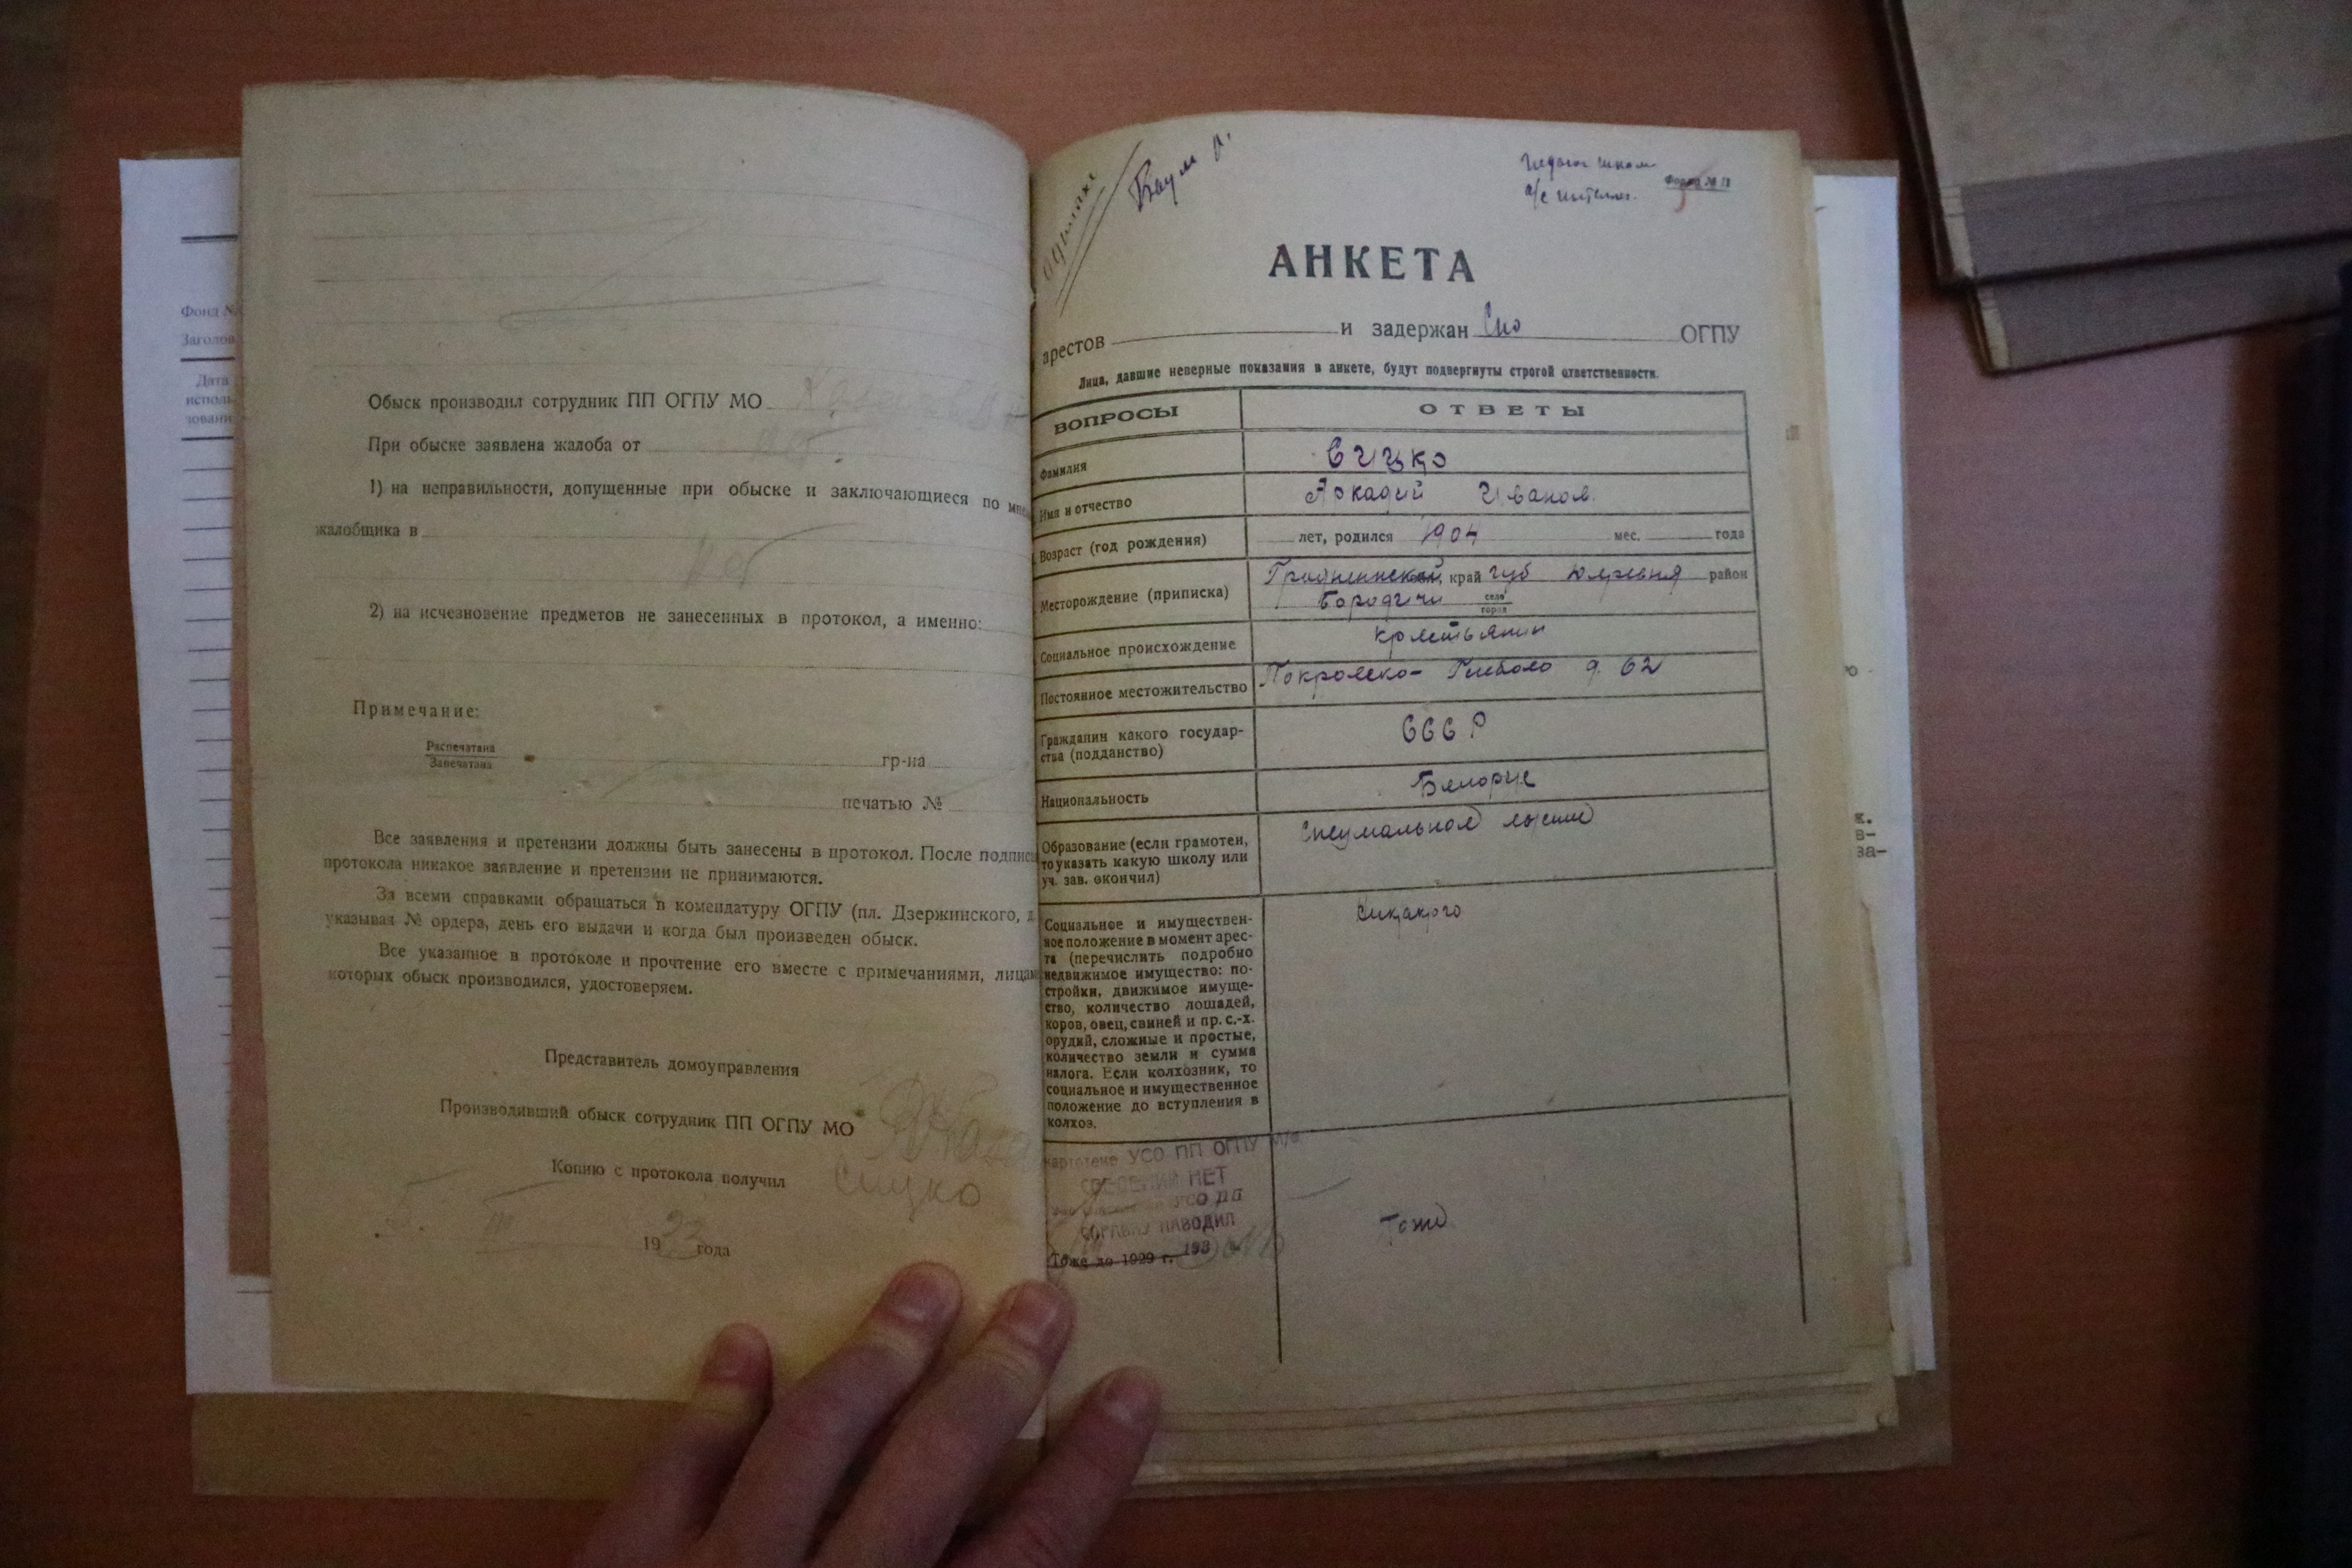 Фонд №
Заголов
Дата
исполь-
зовани
Обыск производил сотрудник ПП ОГПУ МО
При обыске заявлена жалоба от
1) на неправильности, допущенные при обыске и заключающиеся по мне
жалобщика в
2) на исчезновение предметов не занесенных в протокол, а именно:
Примечание:
Распечатана
Запечатана
гр-на
печатью №
Все заявления и претензии должны быть занесены в протокол. После подписи
протокола никакое заявление и претензии не принимаются.
За всеми справками обращаться в комендатуру ОГПУ (пл. Дзержинского, д.
указывая № ордера, день его выдачи и когда был произведен обыск.
Все указанное в протоколе и прочтение его вместе с примечаниями, лицам
которых обыск производился, удостоверяем.
Представитель домоуправления
Производивший обыск сотрудник ПП ОГПУ МО
Копию с протокола получил Сицко
1933 года
Баум А.
Форма № 11
АНКЕТА
арестов и задержан ОГПУ
Лица, давшие неверные показания в анкете, будут подвергнуты строгой ответственности.
ВОПРОСЫ ОТВЕТЫ
Фамилия Сицко
Имя и отчество Аркадий Иванов.
Возраст (год рождения) лет, родился 1904 мес. года
Месторождение (приписка) Гродненской, край губ деревня район
Бородичи село
город
Социальное происхождение крестьянин
Постоянное местожительство Покровско- Глебово д. 62
Гражданин какого государ-
ства (подданство) СССР
Национальность Белорус
Образование (если грамотен,
то указать какую школу или
уч. зав. окончил) специальное высшее
Социальное и имуществен-
ное положение в момент арес-
та (перечислить подробно
недвижимое имущество: по-
стройки, движимое имуще-
ство, количество лошадей,
коров, овец, свиней и пр. с.-х.
орудий, сложные и простые,
количество земли и сумма
налога. Если колхозник, то
социальное и имущественное
положение до вступления в
колхоз.
никакого
картотеке УСО ПП ОГПУ М/о
СВЕДЕНИЙ НЕТ
УСО ПП
СПРАВКУ НАВОДИЛ
193
Тоже до 1929 г.
Тоже
ж.
в-
за-